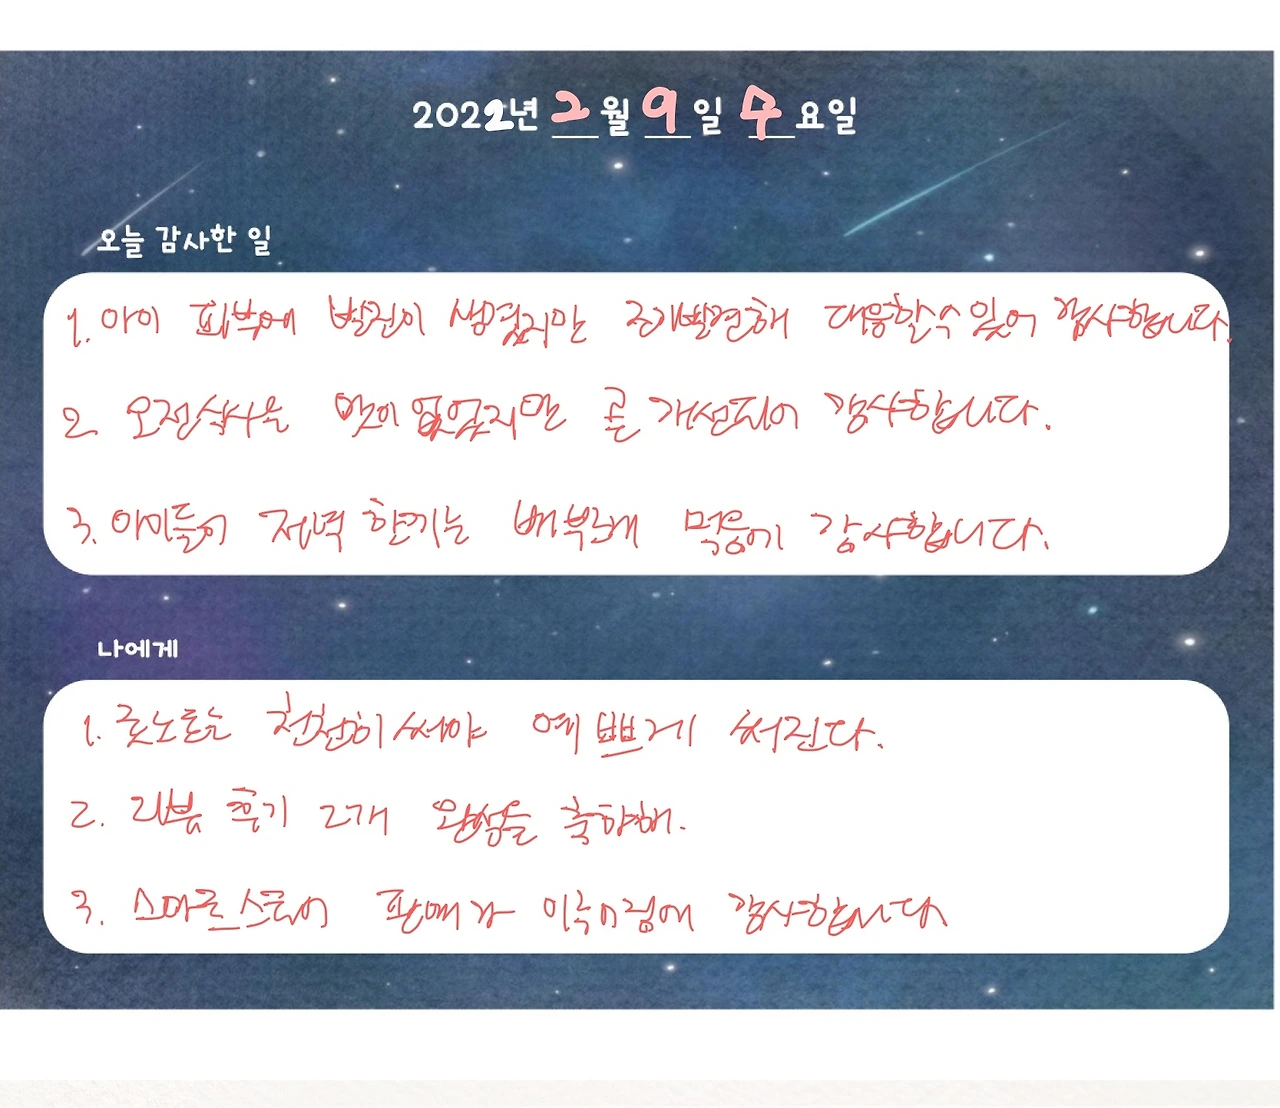 2022년 2월 9일 수요일
오늘 감사한 일
1. 아이 피부에 발진이 생겼지만 조기발견해 대응할수 있어 감사합니다.
2. 오전식사는 맛이 없었지만 곧 개선되어 감사합니다.
3. 아이들이 저녁 한끼는 배부르게 먹음에 감사합니다.
나에게
1. 굿노트는 천천히써야 예쁘게 써진다.
2. 리뷰 후기 2개 완성을 축하해.
3. 스마트스토어 판매가 이루어짐에 감사합니다